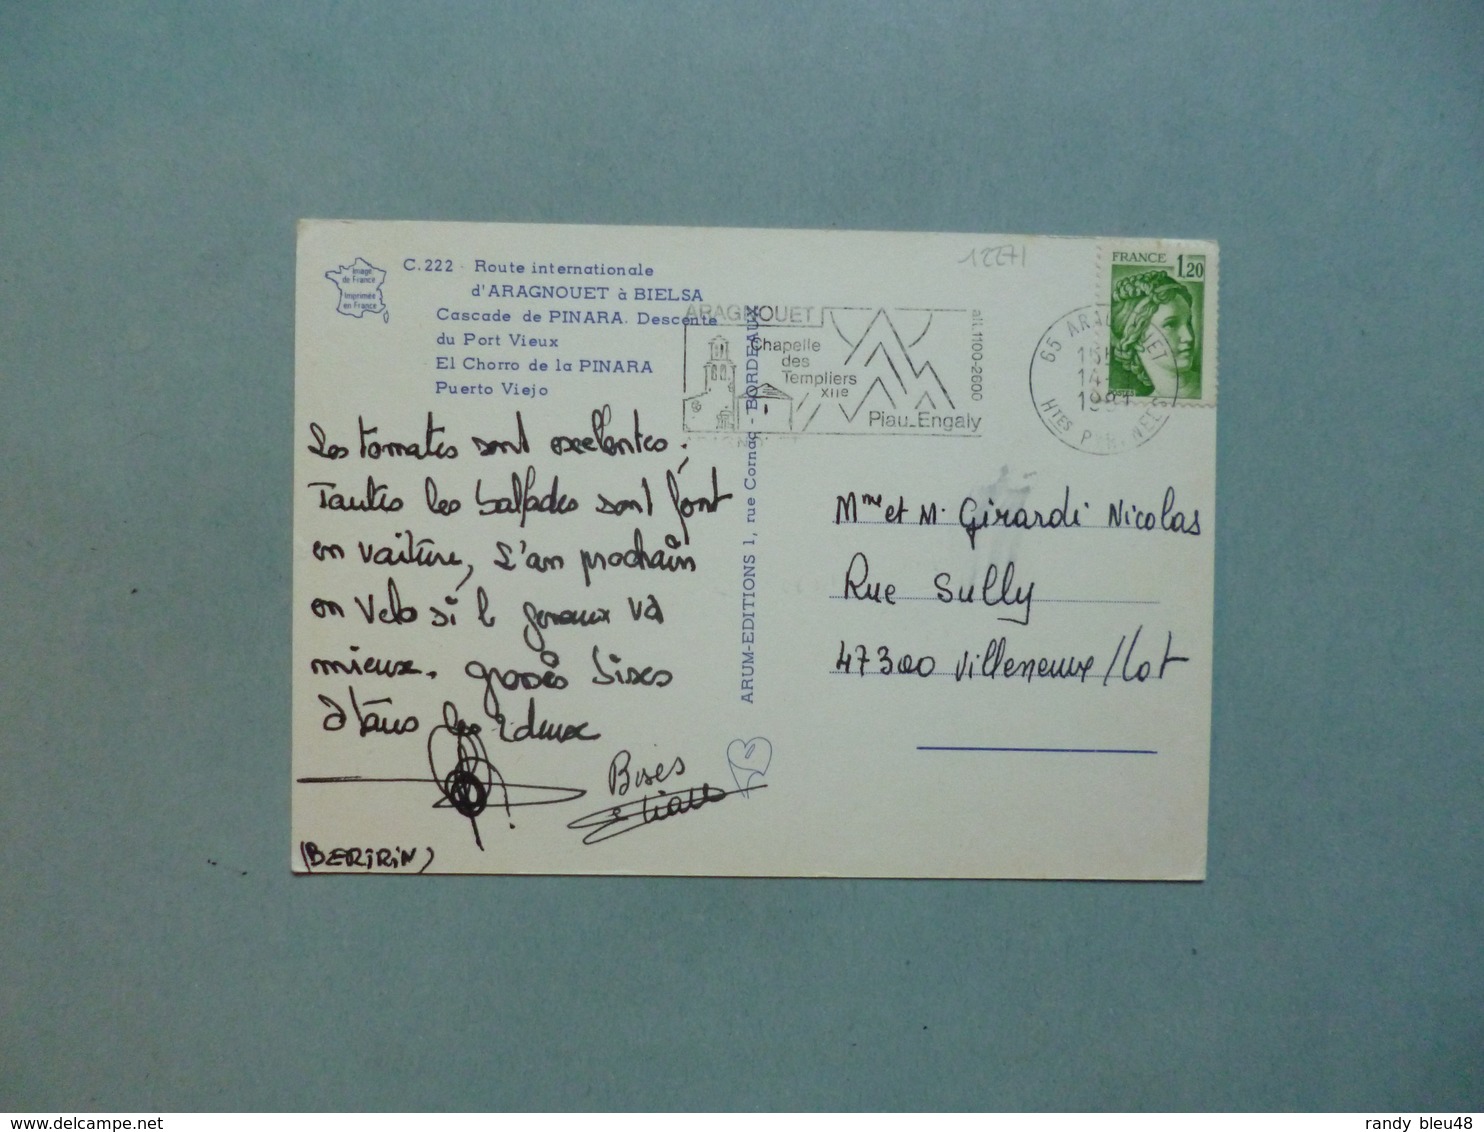 Image
de France
Imprimée
en France
C.222 - Route internationale
d'ARAGNOUET à BIELSA
Cascade de PINARA. Descente
du Port Vieux
El Chorro de la PINARA
Puerto Viejo
12271
FRANCE 1,20
ARAGNOUET
Chapelle
des
Templiers
XIIe
Piau_Engaly
alt.1100-2600
65 ARAGNOUET
14-
1981
Htes PYRENEES
ARUM-EDITIONS 1, rue Cornac - BORDEAUX
Les tomates sont exelentes.
Toutes les ballades sont font
en voiture, l'an prochain
en velo si le genoux va
mieux. grosses bises
a tous les 2 deux
Bises
(BERIRIN)
Mme et M. Girardi Nicolas
Rue Sully
47300 Villeneuve/Lot
randy_bleu48